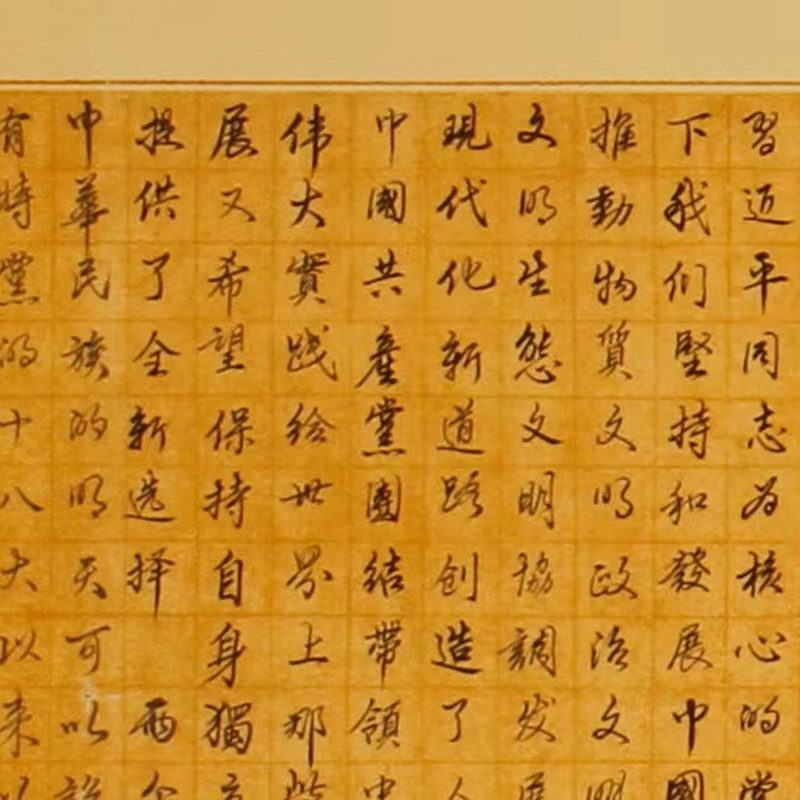 習近平同志为核心的党
下我们堅持和發展中國
推動物質文明政治文明
文明生態文明協調发展
現代化新道路创造了人
中國共產黨團結帶領中
伟大實践给世界上那些
展又希望保持自身獨立
提供了全新选择 两个
中華民族的明天可以说
有時黨的十八大以来以